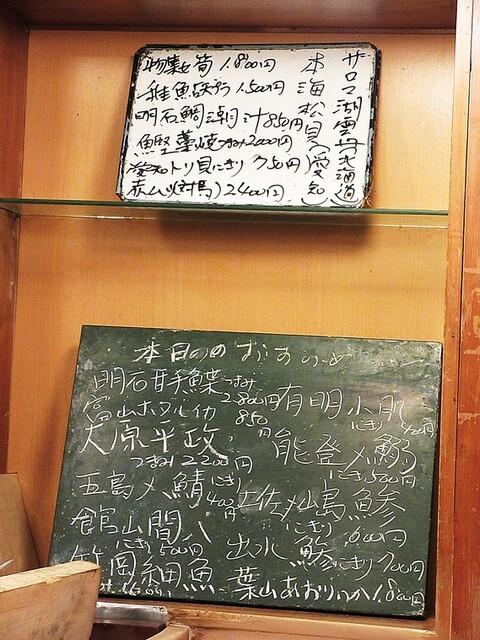 サロマ湖雲丹(北海道)
本海松貝(愛知)
物集女筍 1.800円
稚魚 1.500円
明石鯛潮汁 850円
鰹藁焼つまみ2000円
愛知トリ貝にぎり 750円
赤ムツ(対馬) 2400円
本日ののおすすめ
明石甘手鰈 つまみ 2.800円
富山ホタルイカ 850円
大原平政 つまみ 2200円
五島〆鯖 にぎり 400円
館山間八 にぎり 500円
竹岡細魚
有明小肌 にぎり 400円
能登〆鰯 にぎり 500円
土佐〆嶋鯵 にぎり 600円
出水鯵 にぎり 700円
葉山あおりいか 1.800円